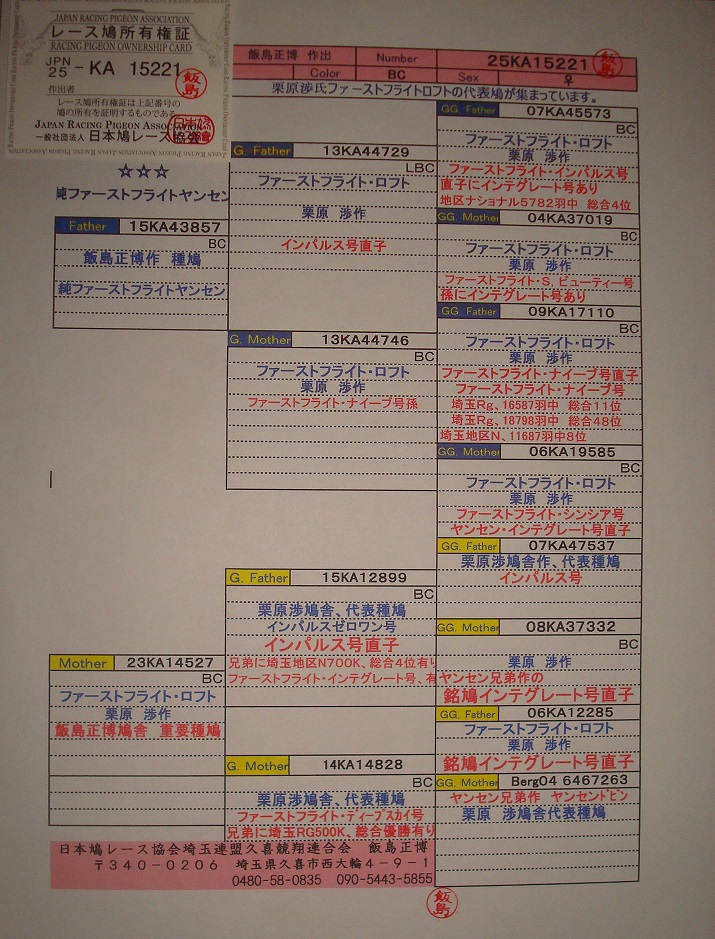 JAPAN RACING PIGEON ASSOCIATION
レース鳩所有権証
RACING PIGEON OWNERSHIP CARD
JPN
25 - KA 15221
飯島
作出者
レース鳩所有権証は上記番号の
鳩の所有を証明するものである
JAPAN RACING PIGEON ASSOCIATION
一般社団法人 日本鳩レース協会
飯島正博 作出 Number 25KA15221
飯島
Color BC Sex ♀
栗原渉氏ファーストフライトロフトの代表鳩が集まっています。
☆☆☆
純ファーストフライトヤンセン
Father 15KA43857
BC
飯島正博作 種鳩
純ファーストフライトヤンセン
G. Father 13KA44729
LBC
ファーストフライト・ロフト
栗原 渉作
インパルス号直子
G. Mother 13KA44746
BC
ファーストフライト・ロフト
栗原 渉作
ファーストフライト・ナイーブ号孫
GG. Father 07KA45573
BC
ファーストフライト・ロフト
栗原 渉作
ファーストフライト・インパルス号
直子にインテグレート号あり
地区ナショナル5782羽中 総合4位
GG. Mother 04KA37019
BC
ファーストフライト・ロフト
栗原 渉作
ファーストフライト・S、ビューティー号
孫にインテグレート号あり
GG. Father 09KA17110
BC
ファーストフライト・ロフト
栗原 渉作
ファーストフライト・ナイーブ号直子
ファーストフライト・ナイーブ号
埼玉Rg、16587羽中 総合11位
埼玉Rg、18798羽中 総合48位
埼玉地区N、11687羽中8位
GG. Mother 06KA19585
BC
ファーストフライト・ロフト
栗原 渉作
ファーストフライト・シンシア号
ヤンセン・インテグレート号直子
Mother 23KA14527
BC
ファーストフライト・ロフト
栗原 渉作
飯島正博鳩舎 重要種鳩
G. Father 15KA12899
BC
栗原渉鳩舎、代表種鳩
インパルスゼロワン号
インパルス号直子
兄弟に埼玉地区N700K、総合4位有り
ファーストフライト・インテグレート号、有
G. Mother 14KA14828
BC
栗原渉鳩舎、代表種鳩
ファーストフライト・ディープスカイ号
兄弟に埼玉RG500K、総合優勝有り
GG. Father 07KA47537
栗原渉鳩舎作、代表種鳩
インパルス号
GG. Mother 08KA37332
BC
栗原 渉作
ヤンセン兄弟作の
銘鳩インテグレート号直子
GG. Father 06KA12285
ファーストフライト・ロフト
栗原 渉作
銘鳩インテグレート号直子
GG. Mother Berg04 6467263
ヤンセン兄弟作 ヤンセンドビン
栗原 渉鳩舎代表種鳩
日本鳩レース協会埼玉連盟久喜競翔連合会 飯島正博
〒340-0206 埼玉県久喜市西大輪4-9-1
0480-58-0835 090-5443-5855
飯島